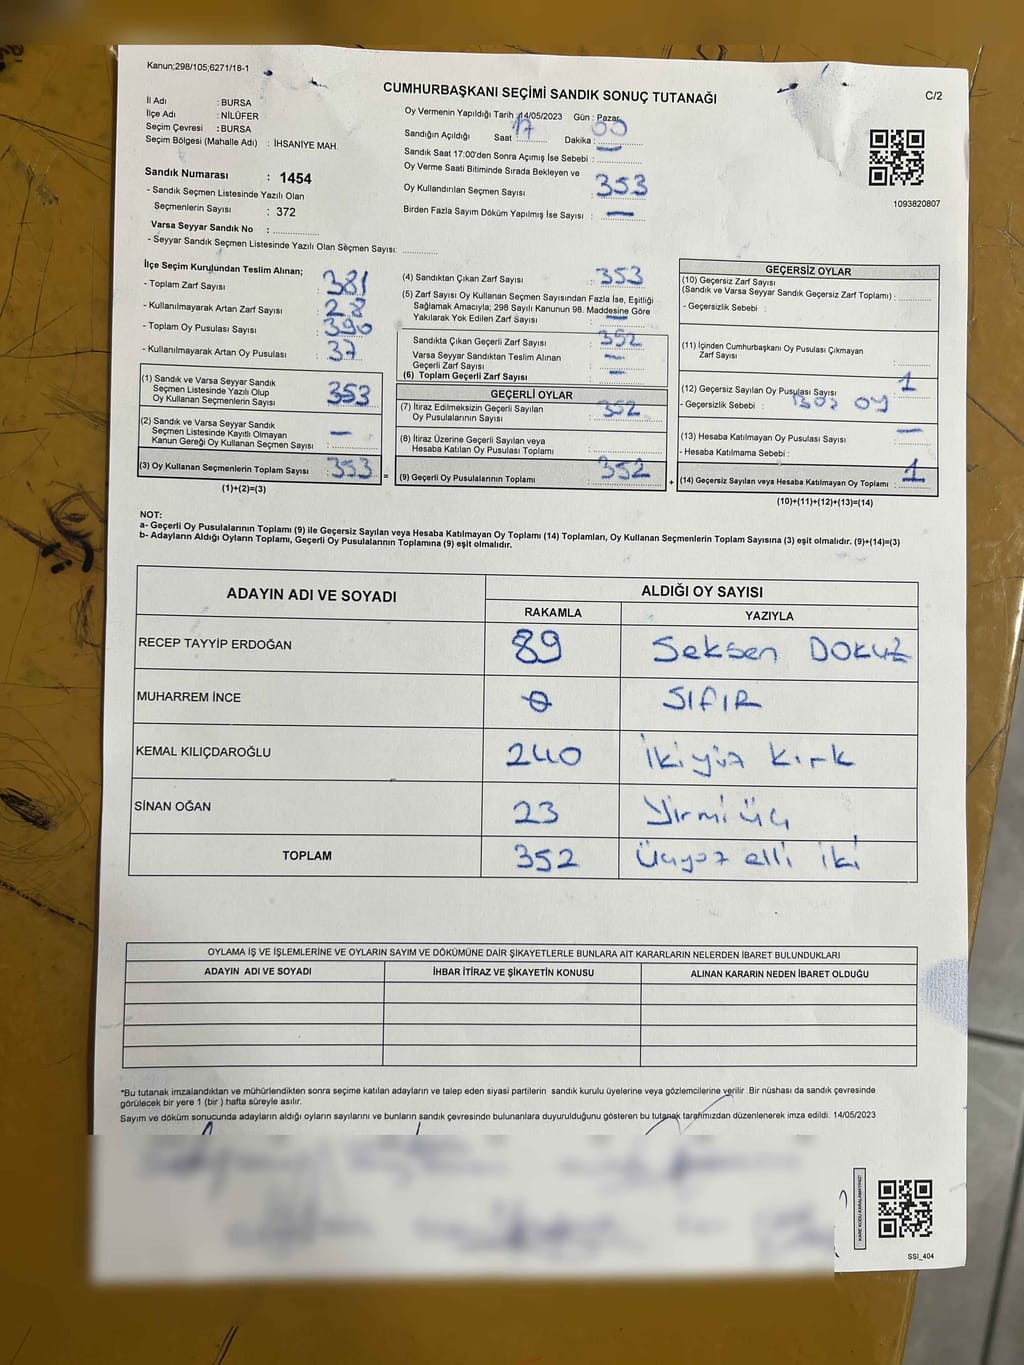 Kanun;298/105;6271/18-1
CUMHURBAŞKANI SEÇİMİ SANDIK SONUÇ TUTANAĞI
C/2
İl Adı : BURSA
İlçe Adı : NİLÜFER
Seçim Çevresi : BURSA
Seçim Bölgesi (Mahalle Adı) : İHSANİYE MAH.
Sandık Numarası : 1454
- Sandık Seçmen Listesinde Yazılı Olan
Seçmenlerin Sayısı : 372
Varsa Seyyar Sandık No :
- Seyyar Sandık Seçmen Listesinde Yazılı Olan Seçmen Sayısı:
Oy Vermenin Yapıldığı Tarih :14/05/2023 Gün : Pazar
Sandığın Açıldığı Saat : 17 Dakika : 00
Sandık Saat 17:00'den Sonra Açımış İse Sebebi : —
Oy Verme Saati Bitiminde Sırada Bekleyen ve
Oy Kullandırılan Seçmen Sayısı : 353
Birden Fazla Sayım Döküm Yapılmış İse Sayısı : —
1093820807
İlçe Seçim Kurulundan Teslim Alınan;
- Toplam Zarf Sayısı : 381
- Kullanılmayarak Artan Zarf Sayısı : 28
- Toplam Oy Pusulası Sayısı : 390
- Kullanılmayarak Artan Oy Pusulası : 37
(1) Sandık ve Varsa Seyyar Sandık
Seçmen Listesinde Yazılı Olup
Oy Kullanan Seçmenlerin Sayısı : 353
(2) Sandık ve Varsa Seyyar Sandık
Seçmen Listesinde Kayıtlı Olmayan
Kanun Gereği Oy Kullanan Seçmen Sayısı : —
(3) Oy Kullanan Seçmenlerin Toplam Sayısı : 353
(1)+(2)=(3)
=
(4) Sandıktan Çıkan Zarf Sayısı : 353
(5) Zarf Sayısı Oy Kullanan Seçmen Sayısından Fazla İse, Eşitliği
Sağlamak Amacıyla; 298 Sayılı Kanunun 98. Maddesine Göre
Yakılarak Yok Edilen Zarf Sayısı : —
Sandıkta Çıkan Geçerli Zarf Sayısı : 352
Varsa Seyyar Sandıktan Teslim Alınan
Geçerli Zarf Sayısı : —
(6) Toplam Geçerli Zarf Sayısı : —
GEÇERLİ OYLAR
(7) İtiraz Edilmeksizin Geçerli Sayılan
Oy Pusulalarının Sayısı : 352
(8) İtiraz Üzerine Geçerli Sayılan veya
Hesaba Katılan Oy Pusulası Toplamı :
(9) Geçerli Oy Pusulalarının Toplamı : 352
+
GEÇERSİZ OYLAR
(10) Geçersiz Zarf Sayısı
(Sandık ve Varsa Seyyar Sandık Geçersiz Zarf Toplamı) :
- Geçersizlik Sebebi :
(11) İçinden Cumhurbaşkanı Oy Pusulası Çıkmayan
Zarf Sayısı :
(12) Geçersiz Sayılan Oy Pusulası Sayısı : 1
- Geçersizlik Sebebi : Boz oy
(13) Hesaba Katılmayan Oy Pusulası Sayısı : —
- Hesaba Katılmama Sebebi :
(14) Geçersiz Sayılan veya Hesaba Katılmayan Oy Toplamı : 1
(10)+(11)+(12)+(13)=(14)
NOT:
a- Geçerli Oy Pusulalarının Toplamı (9) ile Geçersiz Sayılan veya Hesaba Katılmayan Oy Toplamı (14) Toplamları, Oy Kullanan Seçmenlerin Toplam Sayısına (3) eşit olmalıdır. (9)+(14)=(3)
b- Adayların Aldığı Oyların Toplamı, Geçerli Oy Pusulalarının Toplamına (9) eşit olmalıdır.
ADAYIN ADI VE SOYADI
ALDIĞI OY SAYISI
RAKAMLA YAZIYLA
RECEP TAYYİP ERDOĞAN 89 Seksen Dokuz
MUHARREM İNCE 0 SIFIR
KEMAL KILIÇDAROĞLU 240 İkiyüz kırk
SİNAN OĞAN 23 Yirmi üç
TOPLAM 352 Üçyüz elli iki
OYLAMA İŞ VE İŞLEMLERİNE VE OYLARIN SAYIM VE DÖKÜMÜNE DAİR ŞİKAYETLERLE BUNLARA AİT KARARLARIN NELERDEN İBARET BULUNDUKLARI
ADAYIN ADI VE SOYADI İHBAR İTİRAZ VE ŞİKAYETİN KONUSU ALINAN KARARIN NEDEN İBARET OLDUĞU
*Bu tutanak imzalandıktan ve mühürlendikten sonra seçime katılan adayların ve talep eden siyasi partilerin sandık kurulu üyelerine veya gözlemcilerine verilir .Bir nüshası da sandık çevresinde
görülecek bir yere 1 (bir ) hafta süreyle asılır.
Sayım ve döküm sonucunda adayların aldığı oyların sayılarını ve bunların sandık çevresinde bulunanlara duyurulduğunu gösteren bu tutanak tarafımızdan düzenlenerek imza edildi. 14/05/2023
KARE KODU KARALAMAYINIZ!
SSİ_404